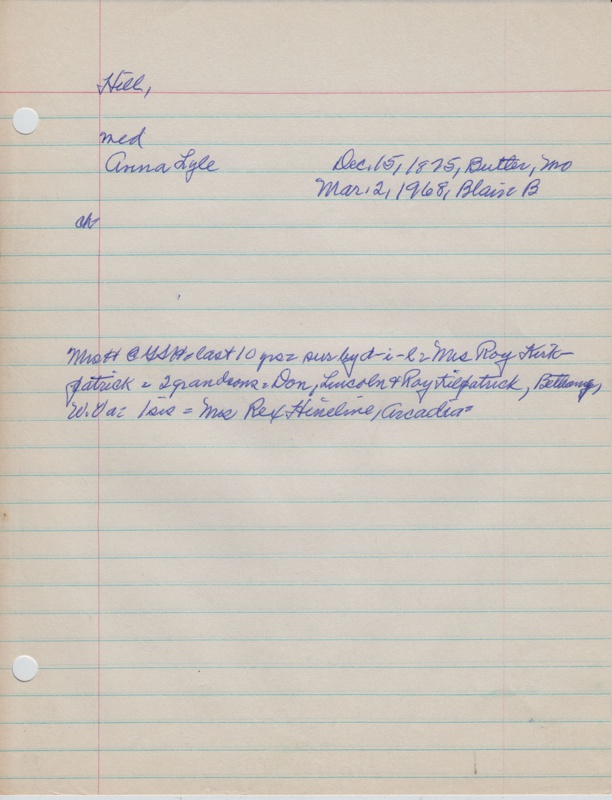 Hill,
med
Anna Lyle Dec. 15, 1875, Butler, Mo
Mar. 2, 1968, Blain B
ch
Mrs H @ last 10 yrs = sur by d-i-l = Mrs Roy Kirk-
patrick = 2 grandsons = Don, Lincoln & Roy Kilpatrick, Bethany,
W. Va = 1 sis = Mrs Rex Hineline, Arcadia =